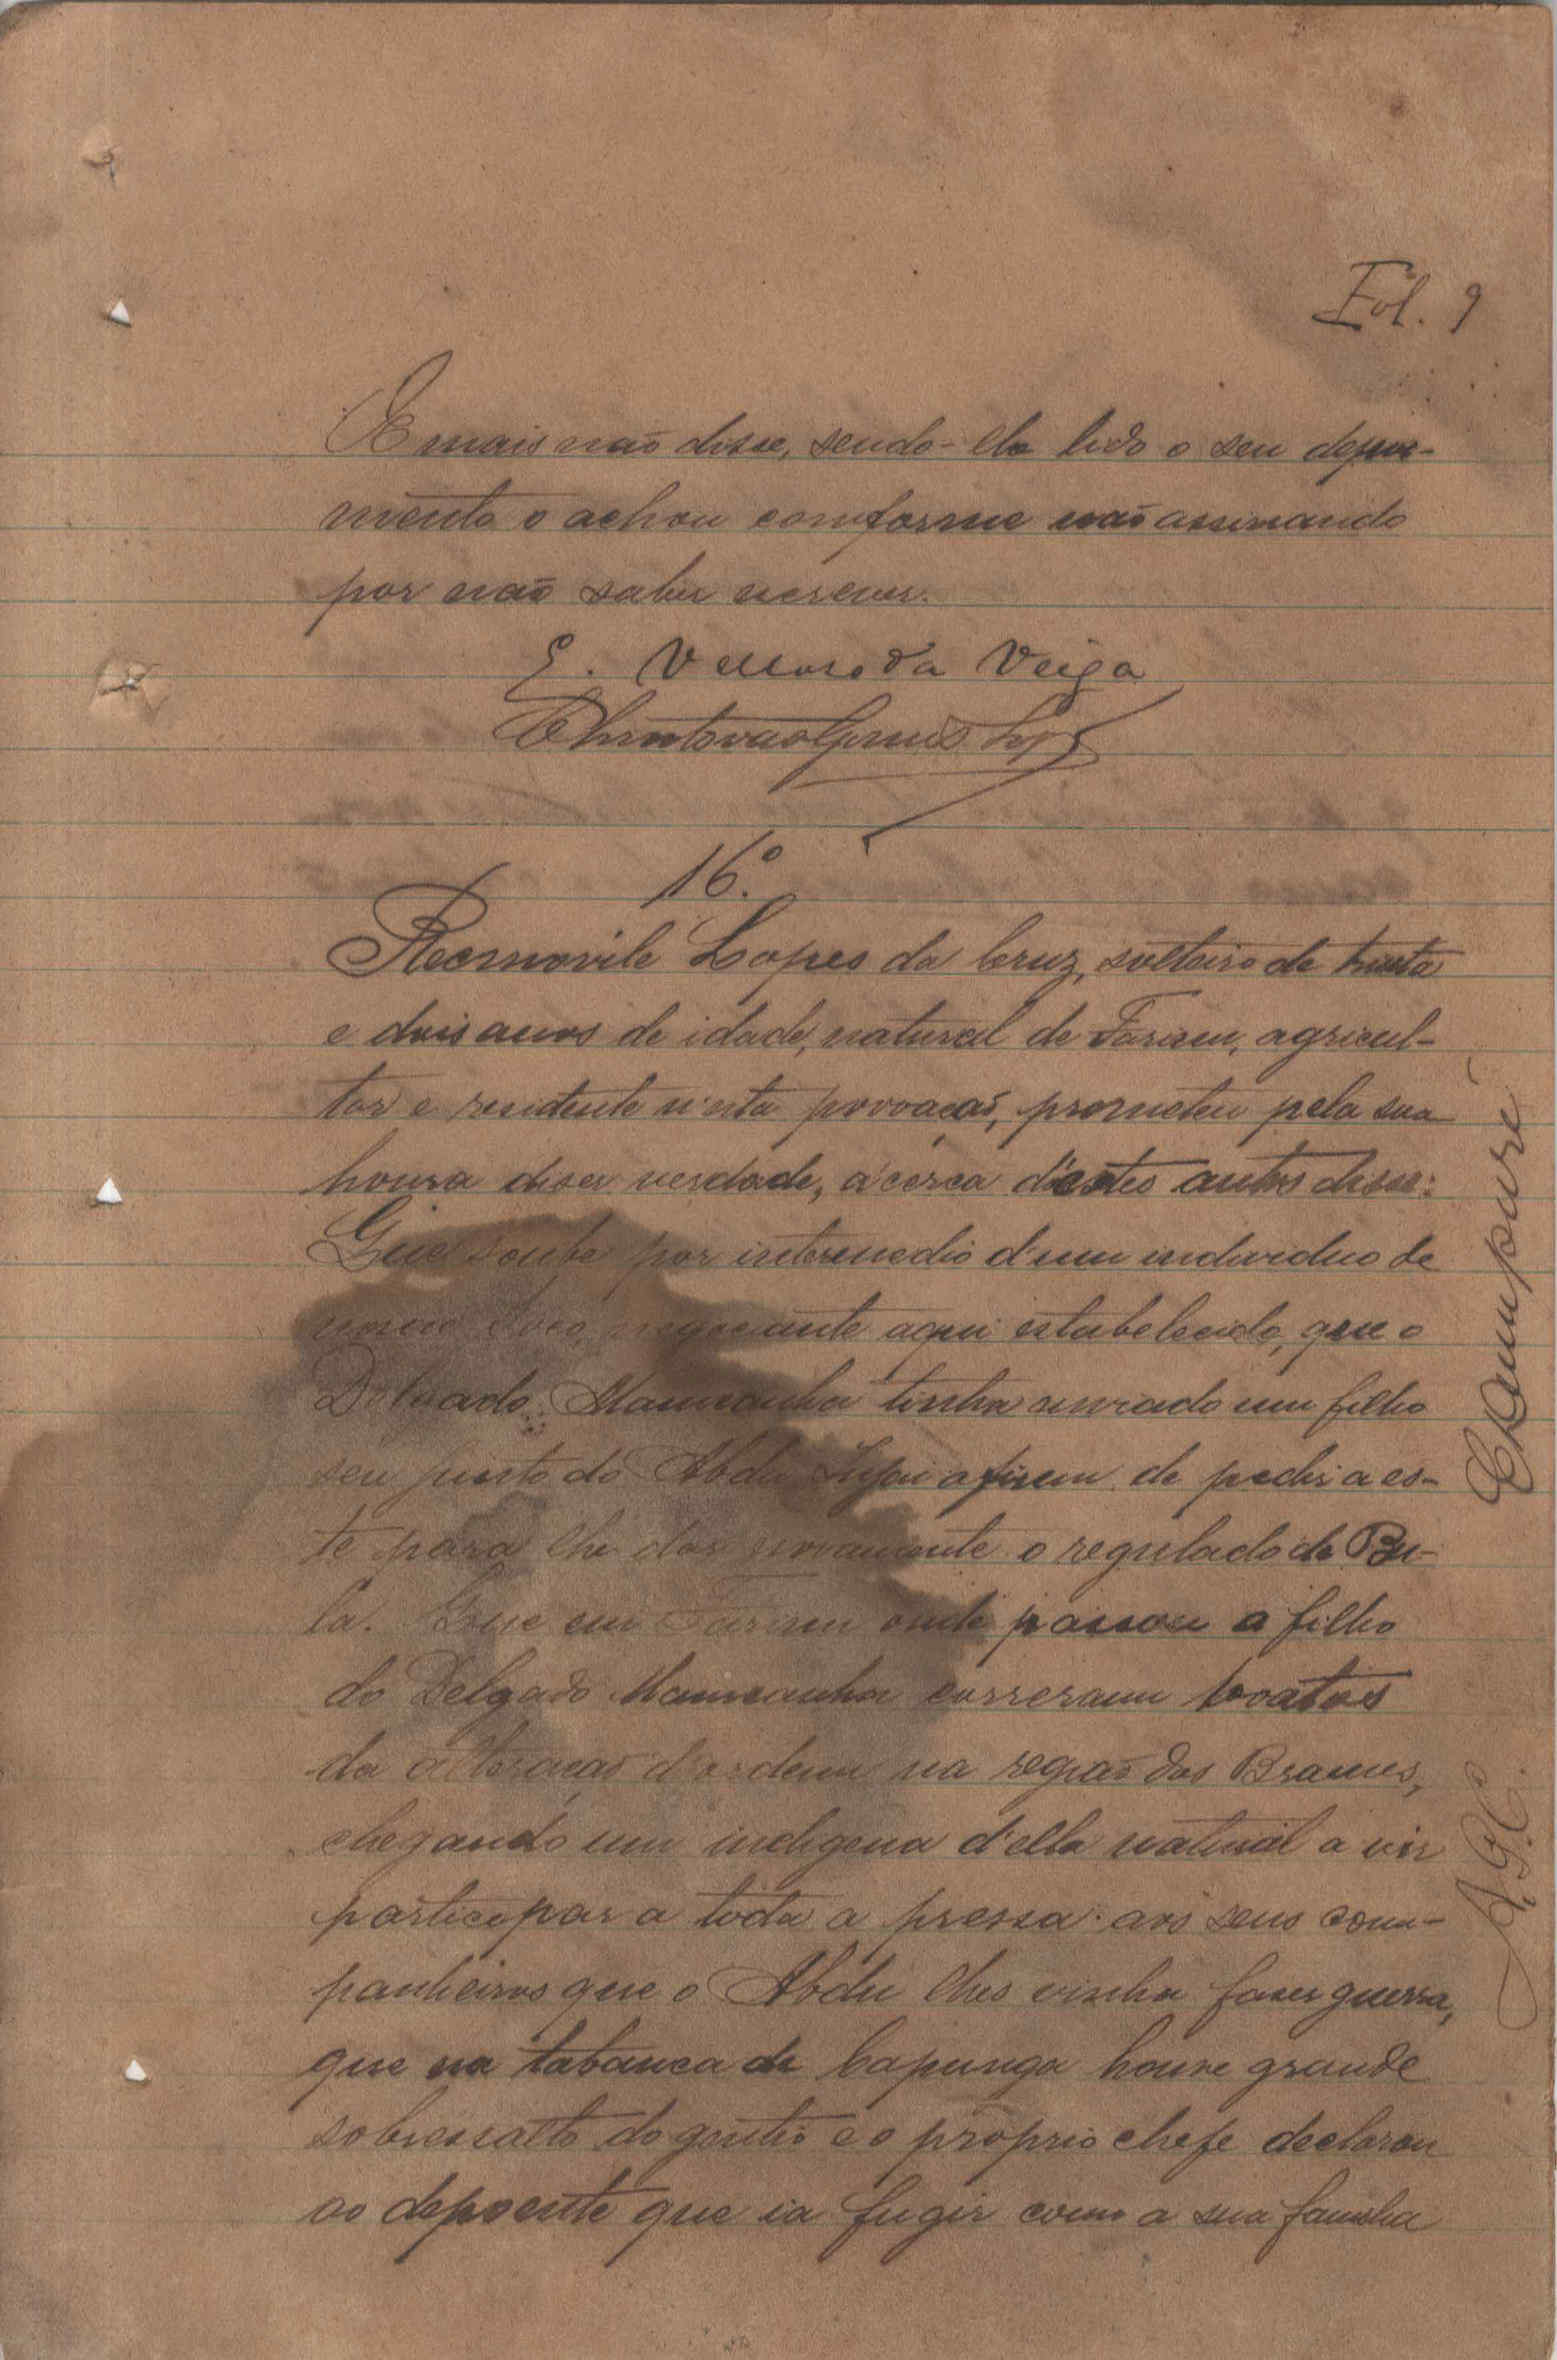 Fol. 9
E mais não disse, sendo-lhe lido o seu depoi-
mento o achou conforme não assinando
por não saber escrever.
E. Velloso da Veiga
Christovão Gomes Lopes
16.º
Lopes da Cruz, solteiro de trinta
e dois anos de idade, natural de Farim, agricul-
tor e residente n'esta povoação, prometeu pela sua
honra diser verdade, ácerca d'estes autos disse:
Que soube por intermedio d'um individuo de
nome negociante aqui estabelecido, que o
Delgado Mamcanha tinha enviado um filho
seu junto do Abdu Injai afirem de pedir a es-
te para lhe dar novamente o regulado de Bu-
la. Que em Farim onde passou o filho
do Delgado Mamcanha correram boatos
da alteração d'ordem na região dos Brames,
chegando um indigena d'ella natural a vir
participar a toda a pressa aos seus com-
panheiros que o Abdu lhes vinha faser guerra,
que na tabanca de Capunga houve grande
sobressalto do gentio e o proprio chefe declarou
ao depoente que ia fugir com a sua familia